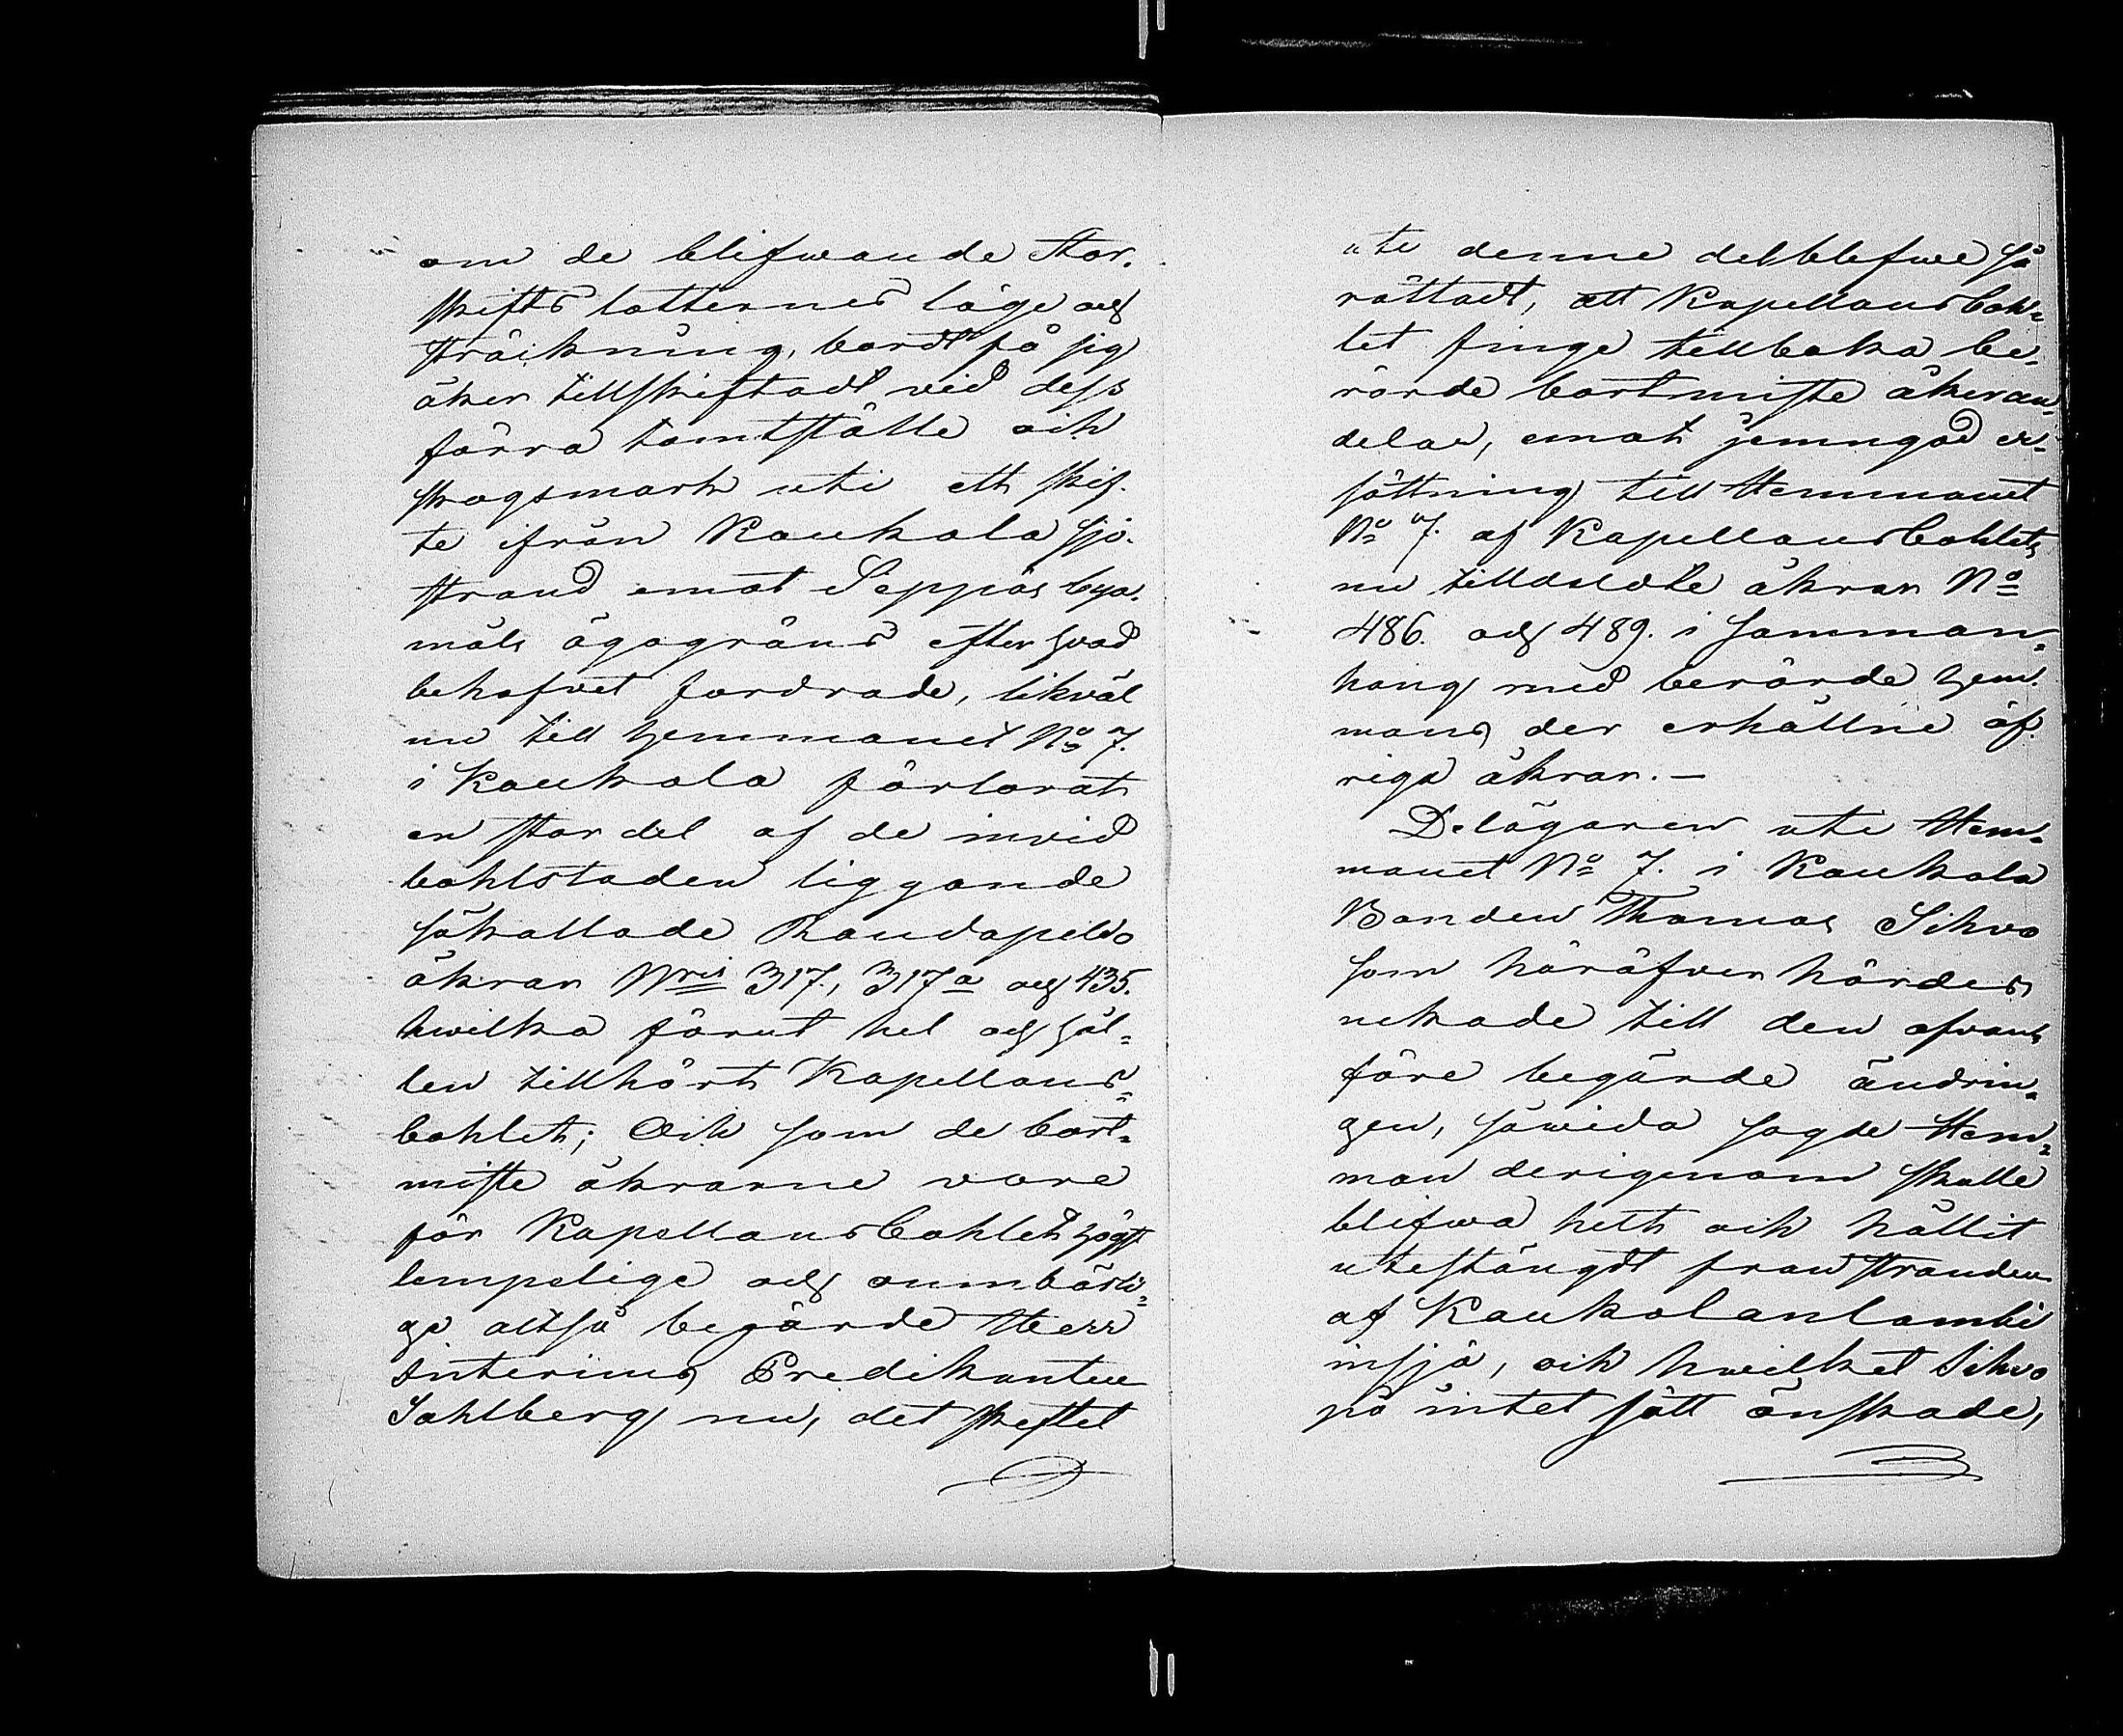 om de blifwande stor-
skifts lotternes läge och
sträckning, bordt få sig
åker tillskiftadt vid dess
förra tomtställe och
skogsmark uti ett skif-
te ifrån Kaukola sjö-
strand emot Seppäs bya-
måls ägogräns efter hvad
behofvet fordrade, likväl
nu till hemmanet No 7.
i Kaukola förlorat
en stor del af de invid
bohlstaden liggande
såkallade Randapeldo
åkrar Nris 317., 317a och 435.
hwilka förut hel och hål-
len tillhört Kapellans-
bohlet; Och som de bort-
miste åkrarne vore
för Kapellansbohlet högst
lempelige och oumbärli-
ga altså begärde Herr
Interims Predikanten
Sahlberg nu, det skiftet
uti denne del blefwe så
rättadt, att Kapellansboh-
let finge tillbaka be-
rörde bortmiste åkeran-
delar, emot jemngod er-
sättning till Hemmanet
No 7. af Kapellansbohlets
nu tilldelte åkrar No
486. och 489. i samman-
hang med berörde hem-
mans der erhållne öf-
riga åkrar. —
Delägaren uti Hem-
manet No 7. i Kaukola
Bonden Thomas Sihvo
som häröfver hördes
nekade till den ofvan-
före begärde ändrin-
gen, såwida sagde Hem-
man derigenom skulle
blifwa helt och hållit
utestängdt från stranden
af Kaukolanlambi
insjö, och hwilket Sihvo
på intet sätt önskade,